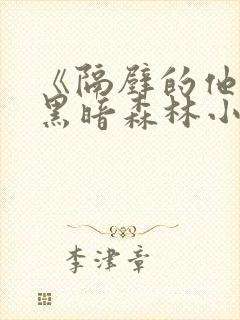 《隔壁的他
黑暗森林小
李津章